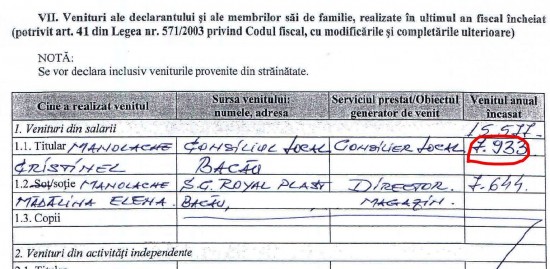 VII. Venituri ale declarantului și ale membrilor săi de familie, realizate în ultimul an fiscal încheiat
(potrivit art. 41 din Legea nr. 571/2003 privind Codul fiscal, cu modificările și completările ulterioare)
NOTĂ:
Se vor declara inclusiv veniturile provenite din străinătate.
Cine a realizat venitul Sursa venitului: numele, adresa Serviciul prestat/Obiectul generator de venit Venitul anual încasat
1. Venituri din salarii 15.577
1.1. Titular MANOLACHE CONSILIUL LOCAL CONSILIER LOCAL 7.933
CRISTINEL BACĂU
1.2. Soț/soție MANOLACHE S.C. ROYAL PLAST DIRECTOR 7.644
MĂDĂLINA ELENA BACĂU, MAGAZIN.
1.3. Copii
2. Venituri din activități independente
2.1. Titular